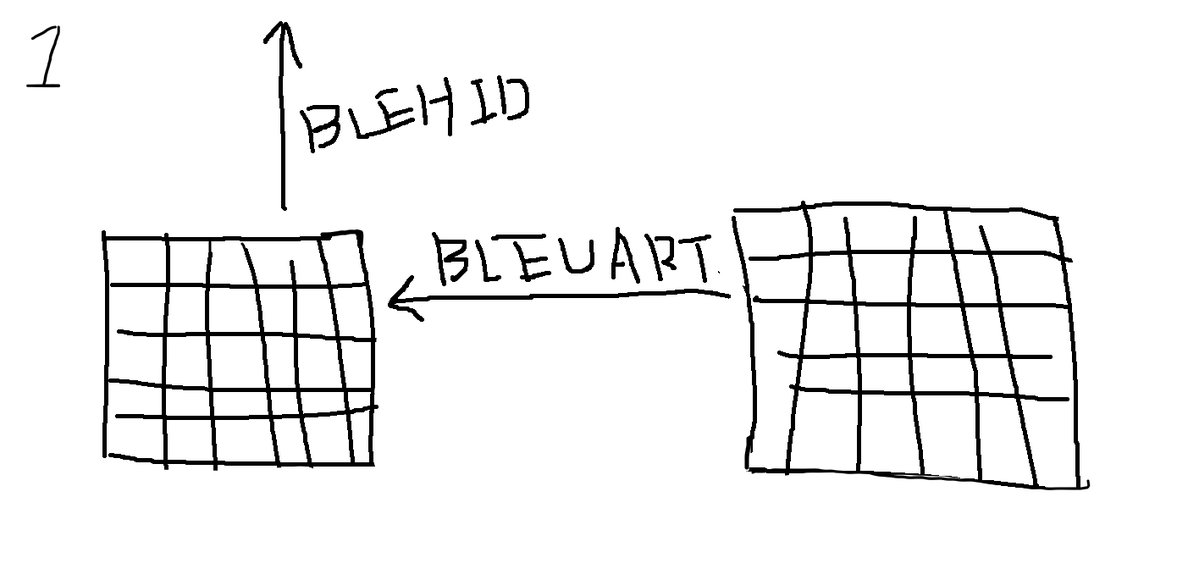 1
BLEHID
BLEUART